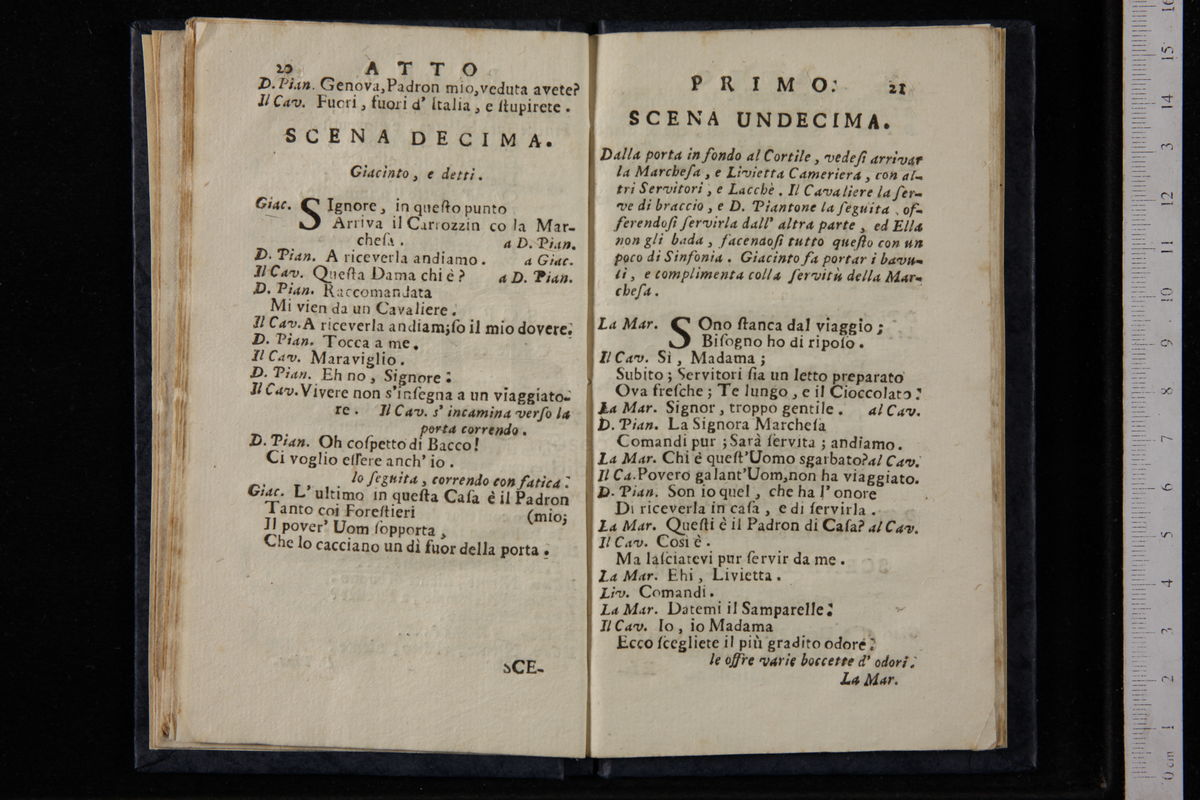 20 ATTO
D. Pian. Genova, Padron mio, veduta avete?
Il Cav. Fuori, fuori d' Italia, e ſtupirete.
SCENA DECIMA.
Giacinto, e detti.
Giac. SIgnore, in queſto punto
Arriva il Carrozzin co la Mar-
cheſa. a D. Pian.
D. Pian. A riceverla andiamo. a Giac.
Il Cav. Queſta Dama chi è? a D. Pian.
D. Pian. Raccomandata
Mi vien da un Cavaliere.
Il Cav. A riceverla andiam; ſo il mio dovere.
D. Pian. Tocca a me.
Il Cav. Maraviglio.
D. Pian. Eh no, Signore:
Il Cav. Vivere non s'inſegna a un viaggiato-
re. Il Cav. s' incamina verſo la
porta correndo.
D. Pian. Oh coſpetto di Bacco!
Ci voglio eſſere anch' io.
lo ſeguita, correndo con fatica.
Giac. L' ultimo in queſta Caſa è il Padron
Tanto coi Foreſtieri (mio;
Il pover' Uom ſopporta,
Che lo cacciano un dì fuor della porta.
SCE-
PRIMO. 21
SCENA UNDECIMA.
Dalla porta in fondo al Cortile, vedeſi arrivar
la Marcheſa, e Livietta Cameriera, con al-
tri Servitori, e Lacchè. Il Cavaliere la ſer-
ve di braccio, e D. Piantone la ſeguita, of-
ferendoſi ſervirla dall' altra parte, ed Ella
non gli bada, facendoſi tutto queſto con un
poco di Sinfonia. Giacinto fa portar i bavu-
li, e complimenta colla ſervitù della Mar-
cheſa.
La Mar. SOno ſtanca dal viaggio;
Biſogno ho di ripoſo.
Il Cav. Sì, Madama;
Subito; Servitori ſia un letto preparato
Ova freſche; Te lungo, e il Cioccolato:
La Mar. Signor, troppo gentile. al Cav.
D. Pian. La Signora Marcheſa
Comandi pur; Sarà ſervita; andiamo.
La Mar. Chi è queſt'Uomo sgarbato? al Cav.
Il Ca. Povero galant'Uom, non ha viaggiato.
D. Pian. Son io quel, che ha l' onore
Di riceverla in caſa, e di ſervirla.
La Mar. Queſti è il Padron di Caſa? al Cav.
Il Cav. Così è.
Ma laſciatevi pur ſervir da me.
La Mar. Ehi, Livietta.
Liv. Comandi.
La Mar. Datemi il Samparelle:
Il Cav. Io, io Madama
Ecco ſcegliete il più gradito odore:
le offre varie boccette d' odori.
La Mar.